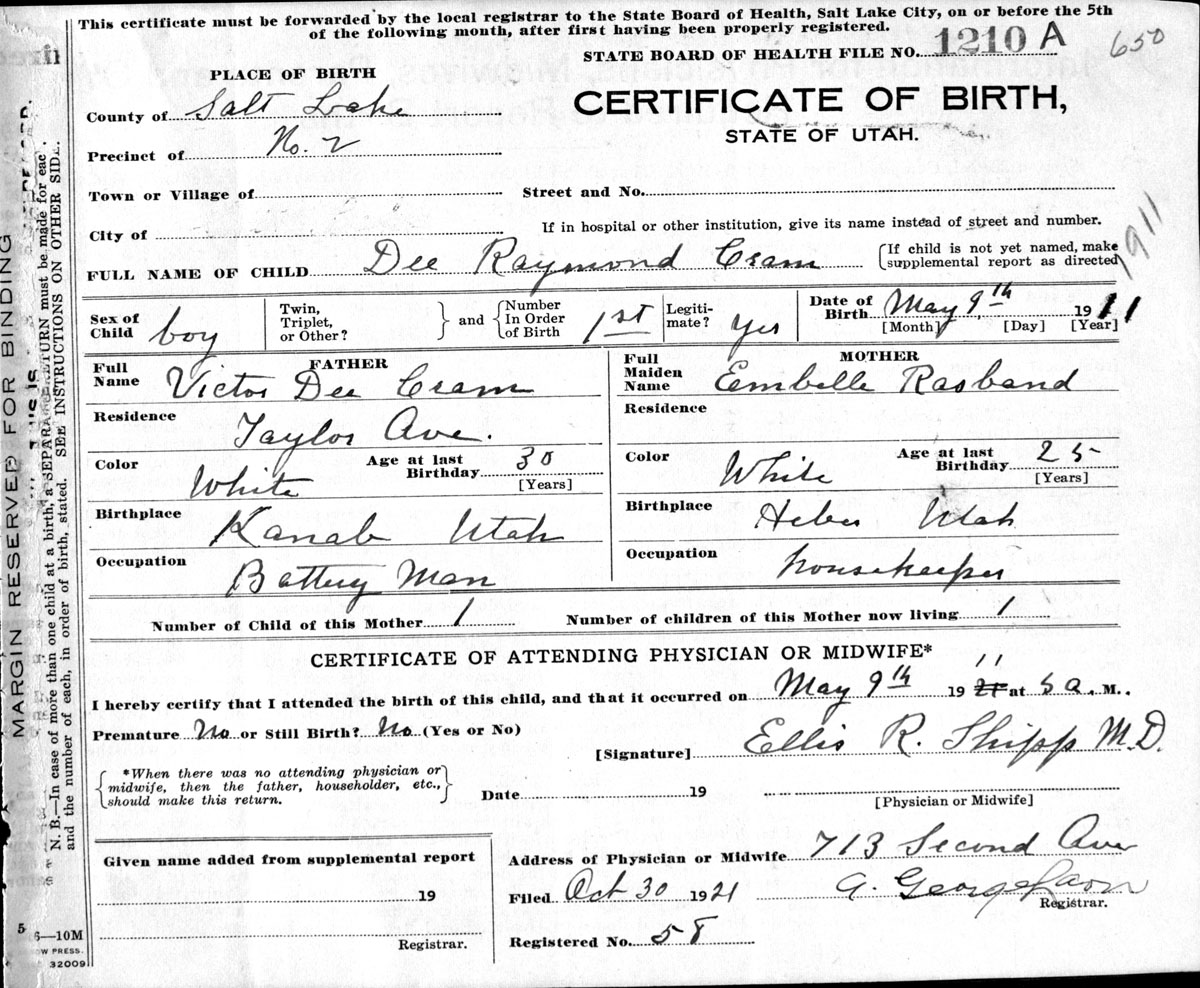 This certificate must be forwarded by the local registrar to the State Board of Health, Salt Lake City, on or before the 5th
of the following month, after first having been properly registered.
STATE BOARD OF HEALTH FILE NO. 1210 A
650
PLACE OF BIRTH
CERTIFICATE OF BIRTH,
STATE OF UTAH.
County of Salt Lake
Precinct of No. 2
Town or Village of
Street and No.
City of
If in hospital or other institution, give its name instead of street and number.
FULL NAME OF CHILD Dee Raymond Cram
If child is not yet named, make
supplemental report as directed
1911
Sex of Child boy
Twin, Triplet, or Other?
and
Number In Order of Birth 1st
Legiti-mate? Yes
Date of Birth May 9th 1911
[Month] [Day] [Year]
FATHER
Full Name Victor Dee Cram
Residence Taylor Ave.
Color White
Age at last Birthday 30
[Years]
Birthplace Kanab Utah
Occupation Battery Man
MOTHER
Full Maiden Name Embelle Rasband
Residence
Color White
Age at last Birthday 25
[Years]
Birthplace Heber Utah
Occupation housekeeper
Number of Child of this Mother 1
Number of children of this Mother now living 1
CERTIFICATE OF ATTENDING PHYSICIAN OR MIDWIFE*
I hereby certify that I attended the birth of this child, and that it occurred on May 9th 1911 at 5 a. M.
Premature No or Still Birth? No (Yes or No)
[Signature] Ellis R. Shipp M.D.
*When there was no attending physician or
midwife, then the father, householder, etc.,
should make this return.
Date 19
[Physician or Midwife]
Given name added from supplemental report
19
Registrar.
Address of Physician or Midwife 713 Second Ave
Filed Oct 30 1921
Registrar.
Registered No. 58
MARGIN RESERVED FOR BINDING
N. B.—In case of more than one child at a birth, a SEPARATE RETURN must be made for eac
and the number of each, in order of birth, stated. SEE INSTRUCTIONS ON OTHER SIDE.
5
6—10M
W PRESS.
32009